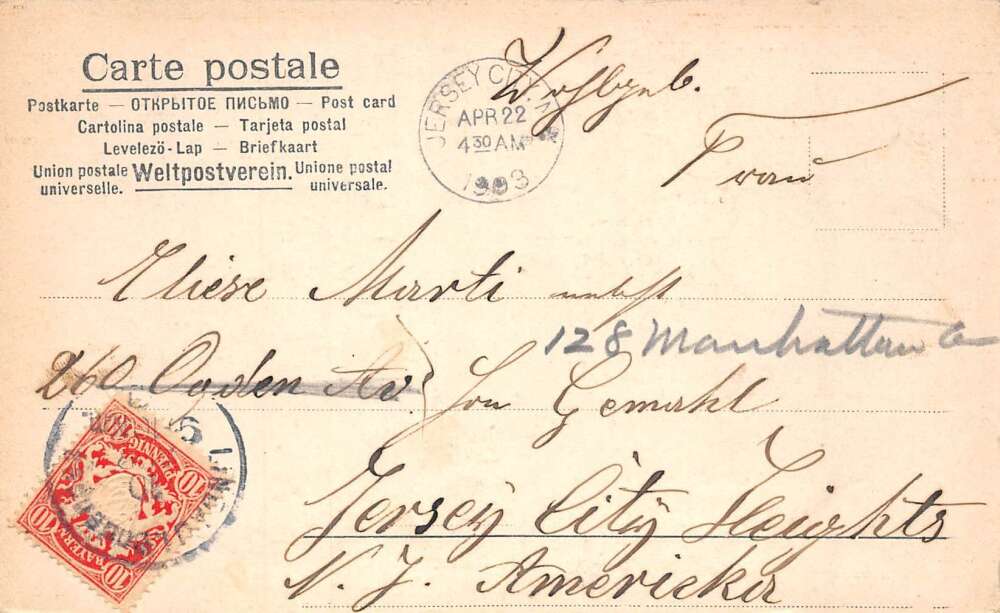 Carte postale
Postkarte — ОТКРЫТОЕ ПИСЬМО — Post card
Cartolina postale — Tarjeta postal
Levelező-Lap — Briefkaart
Union postale universelle. Weltpostverein. Unione postale universale.
JERSEY CITY, N.J.
APR 22
4 30 AM
1903
Wohlgeb.
Frau
Eliese Marti nebst
128 Manhattan
260 Ogden Av Herrn Gemahl
Jersey City Heights
N. J. Amerieka
10 PFENNIG 10
BAYERN
10